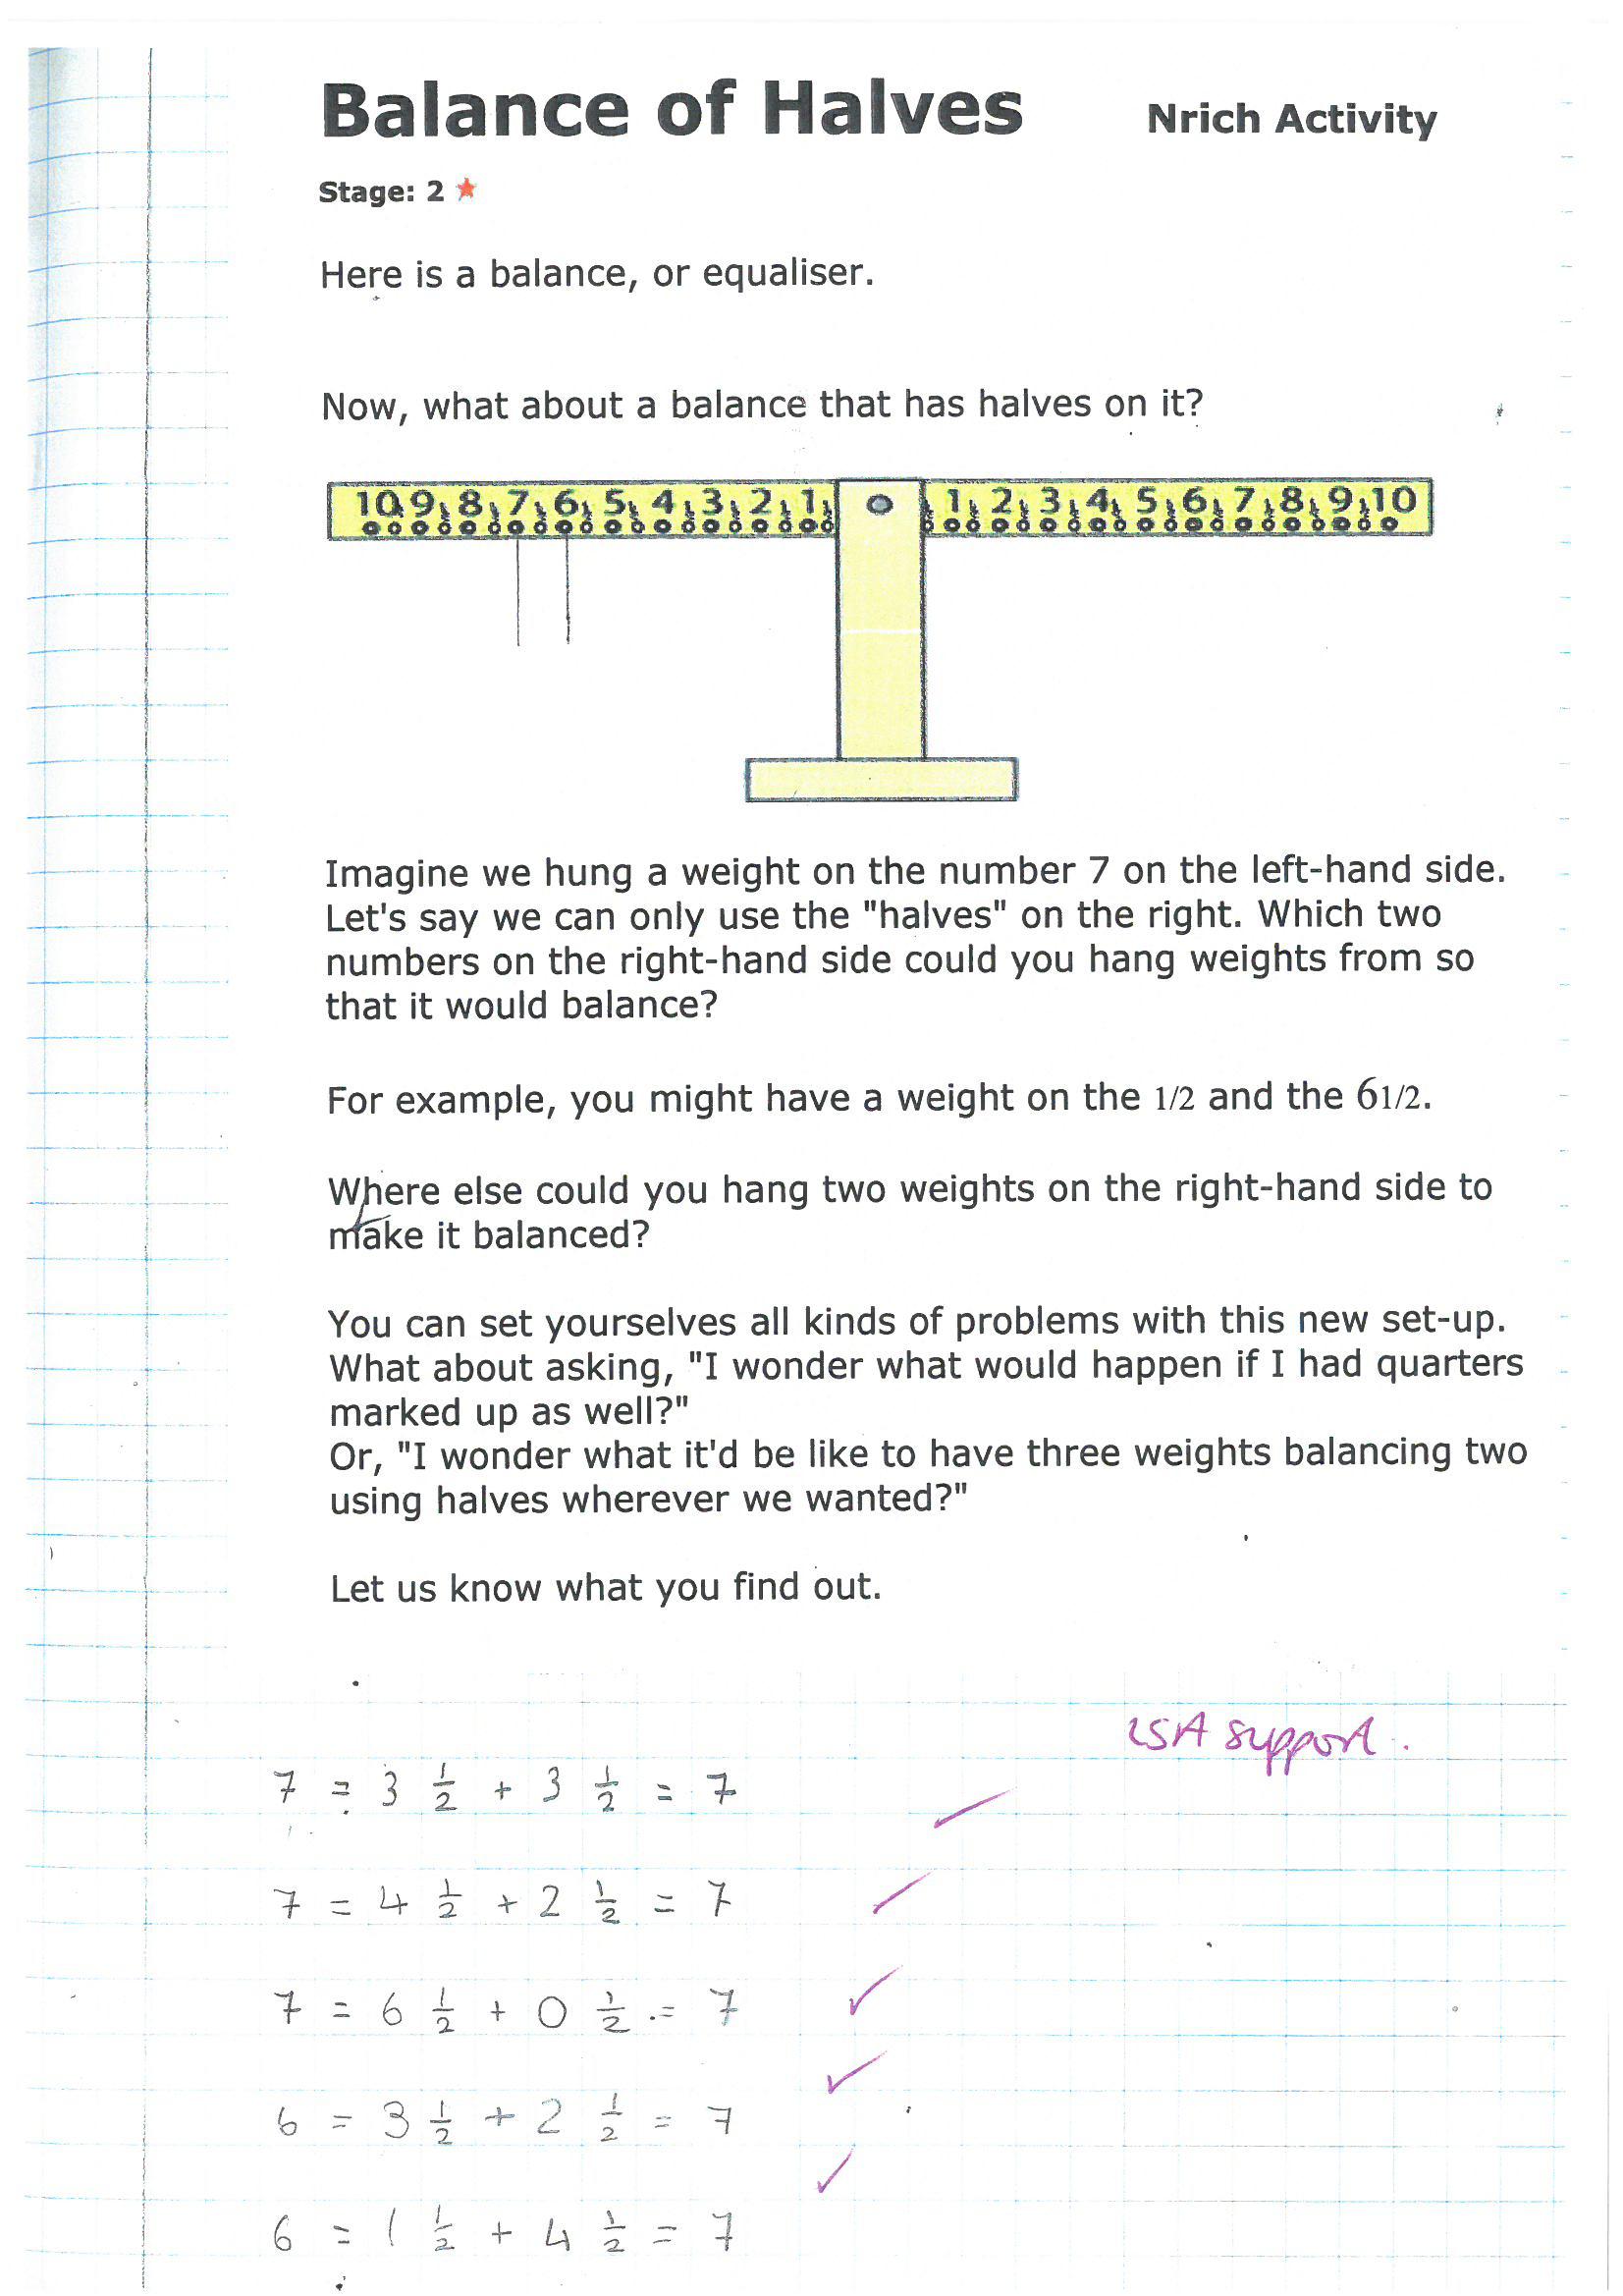 Balance of Halves Nrich Activity
Stage: 2
Here is a balance, or equaliser.
Now, what about a balance that has halves on it?
10 9 8 7 6 5 4 3 2 1 1 2 3 4 5 6 7 8 9 10
Imagine we hung a weight on the number 7 on the left-hand side.
Let's say we can only use the "halves" on the right. Which two
numbers on the right-hand side could you hang weights from so
that it would balance?
For example, you might have a weight on the 1/2 and the 61/2.
Where else could you hang two weights on the right-hand side to
make it balanced?
You can set yourselves all kinds of problems with this new set-up.
What about asking, "I wonder what would happen if I had quarters
marked up as well?"
Or, "I wonder what it'd be like to have three weights balancing two
using halves wherever we wanted?"
Let us know what you find out.
LSA support.
7 = 3 1/2 + 3 1/2 = 7
7 = 4 1/2 + 2 1/2 = 7
7 = 6 1/2 + 0 1/2 = 7
6 = 3 1/2 + 2 1/2 = 7
6 = 1 1/2 + 4 1/2 = 7